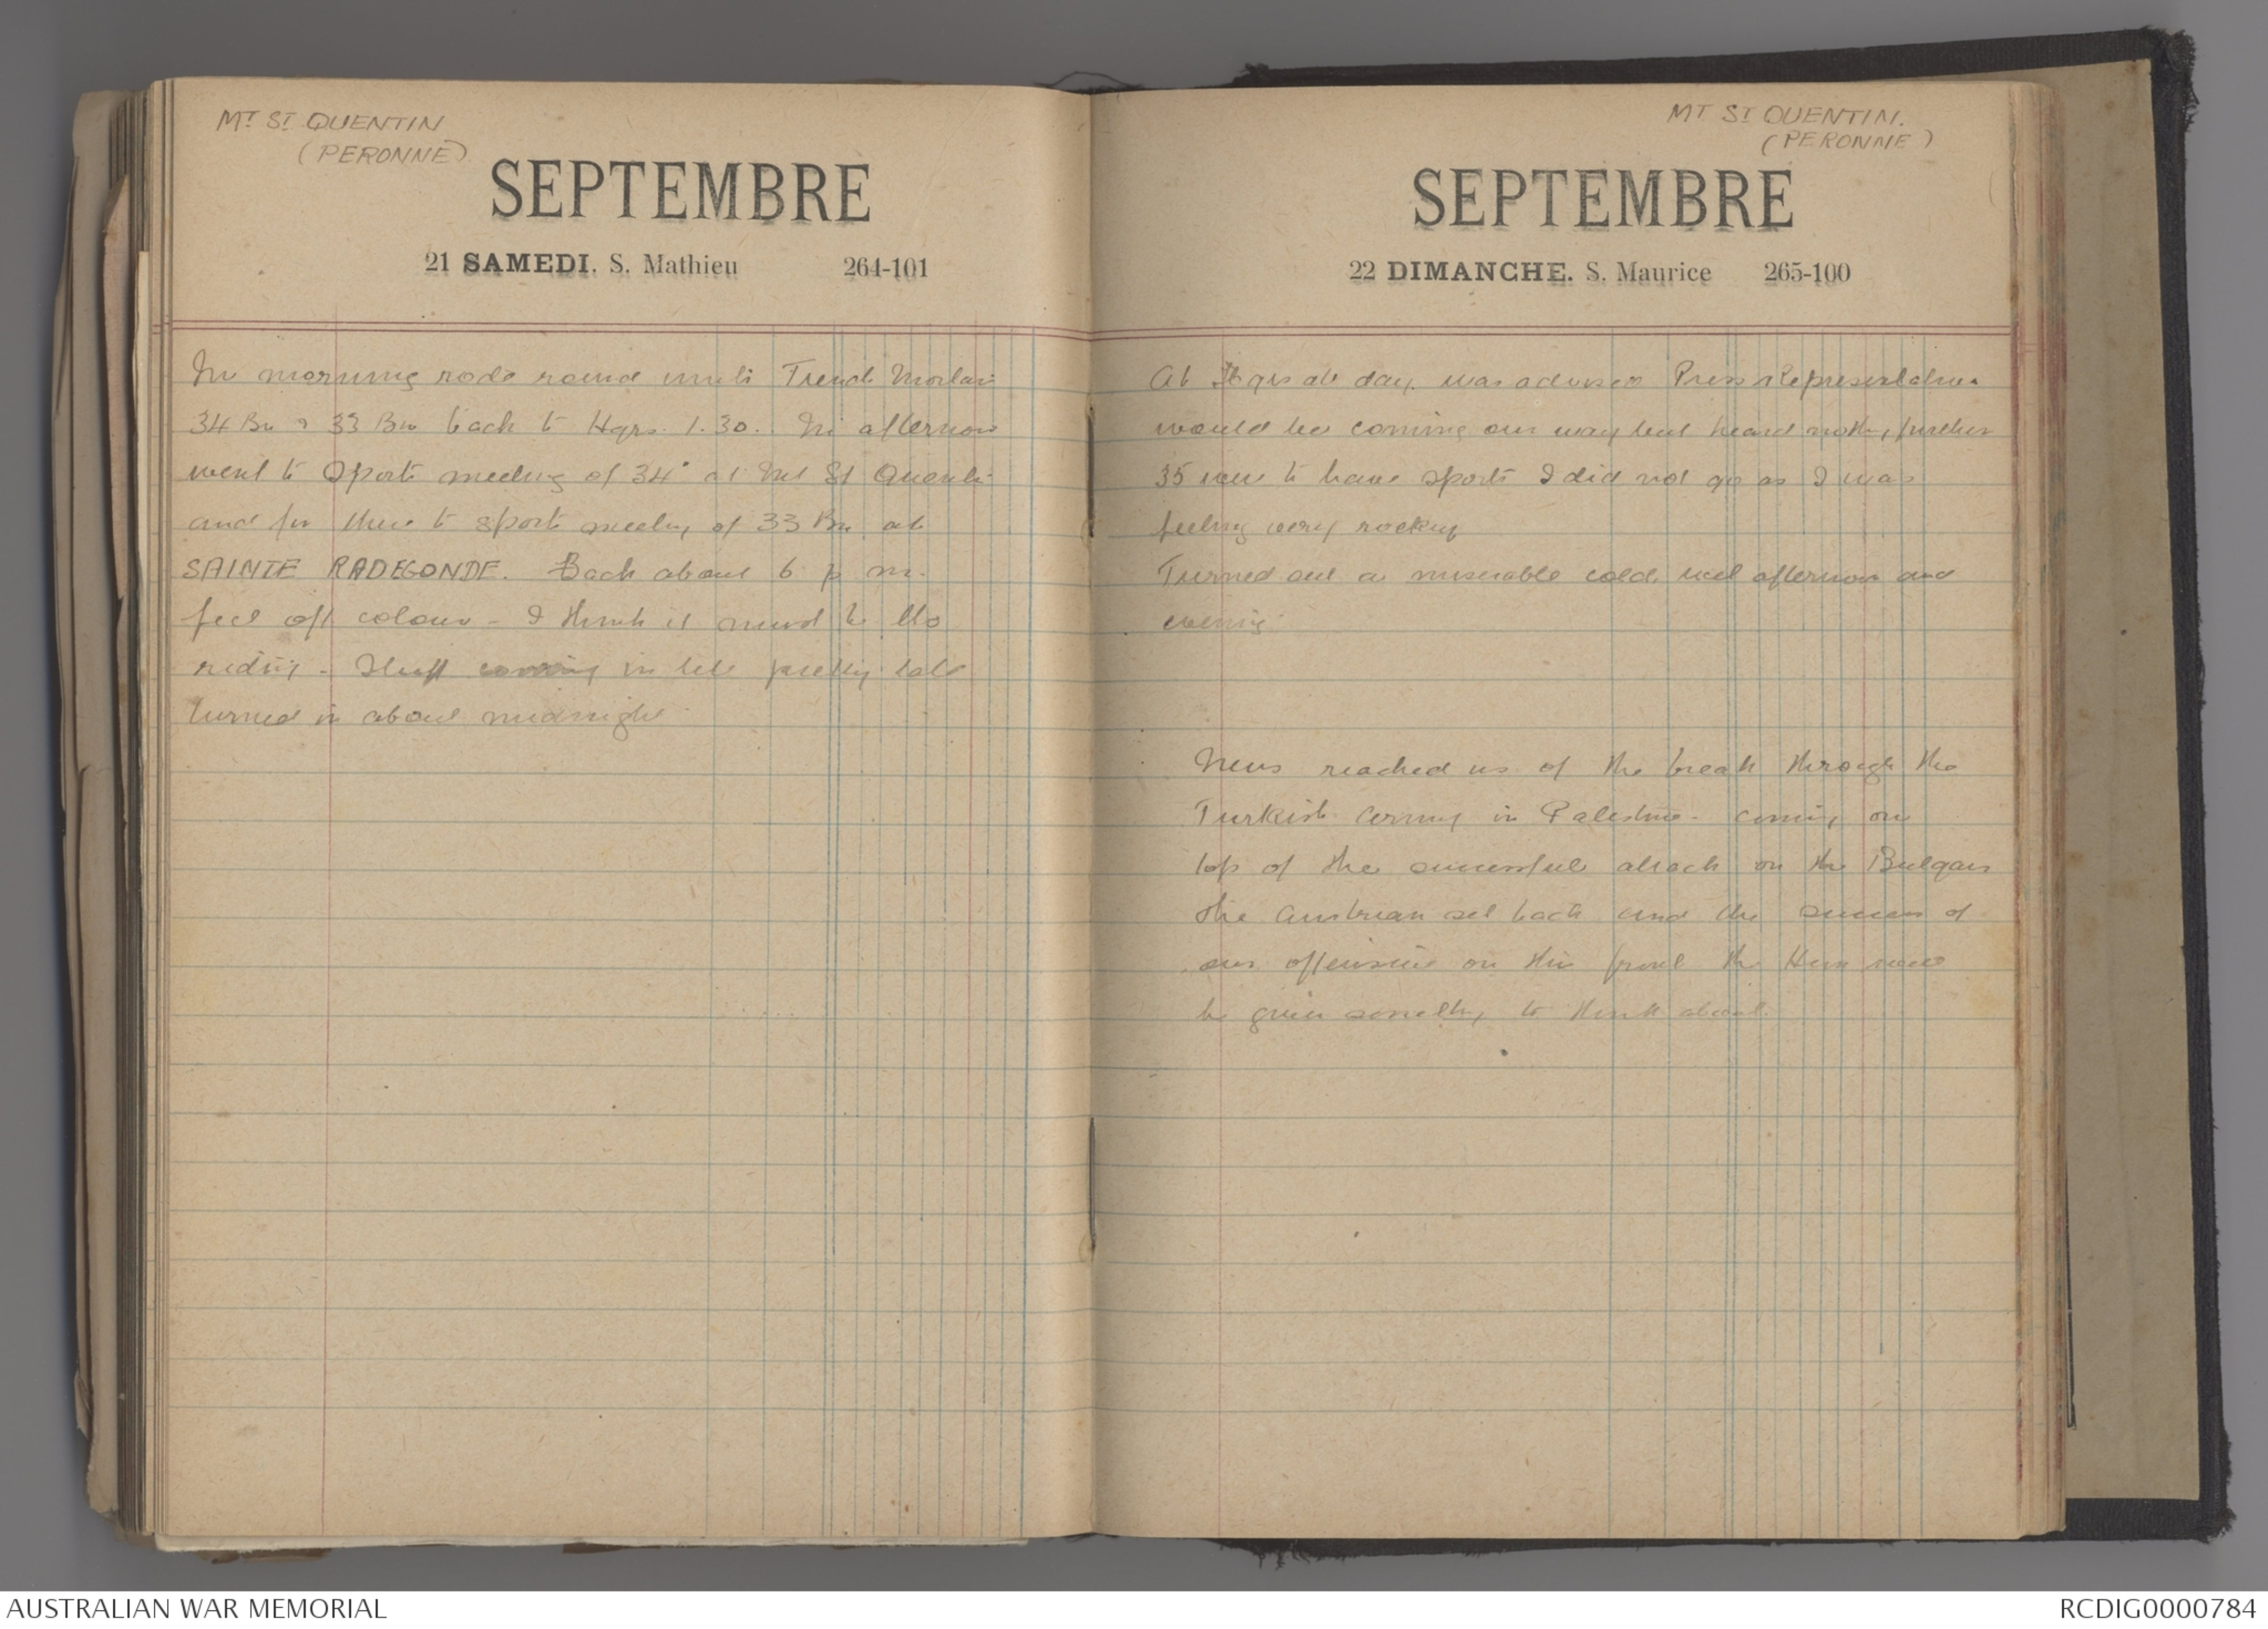 MT ST QUENTIN
(PERONNE)
SEPTEMBRE
21 SAMEDI. S. Mathieu 264-101
In morning rode round units Trench Mortars
34 Bn & 33 Bn back to Hqrs. 1.30. In afternoon
went to Sports meeting of 34th at Mt St Quentin
and from there to sports meeting of 33 Bn at
SAINTE RADEGONDE. Back about 6 p m.
feel off colour - I think it must be the
riding - Stuff coming in till pretty late
turned in about midnight
MT ST QUENTIN.
(PERONNE)
SEPTEMBRE
22 DIMANCHE. S. Maurice 265-100
At Hqrs all day. was advised Press Representatives
would be coming our way but heard nothing further
35 were to have sports I did not go as I was
feeling very rocky
Turned out a miserable cold wet afternoon and
evening
News reached us of the break through the
Turkish Army in Palestine - coming on
top of the successful attack on the Bulgars
the Austrian set back and the success of
our offensive on this front the Hun must
be given something to think about.
AUSTRALIAN WAR MEMORIAL
RCDIG0000784